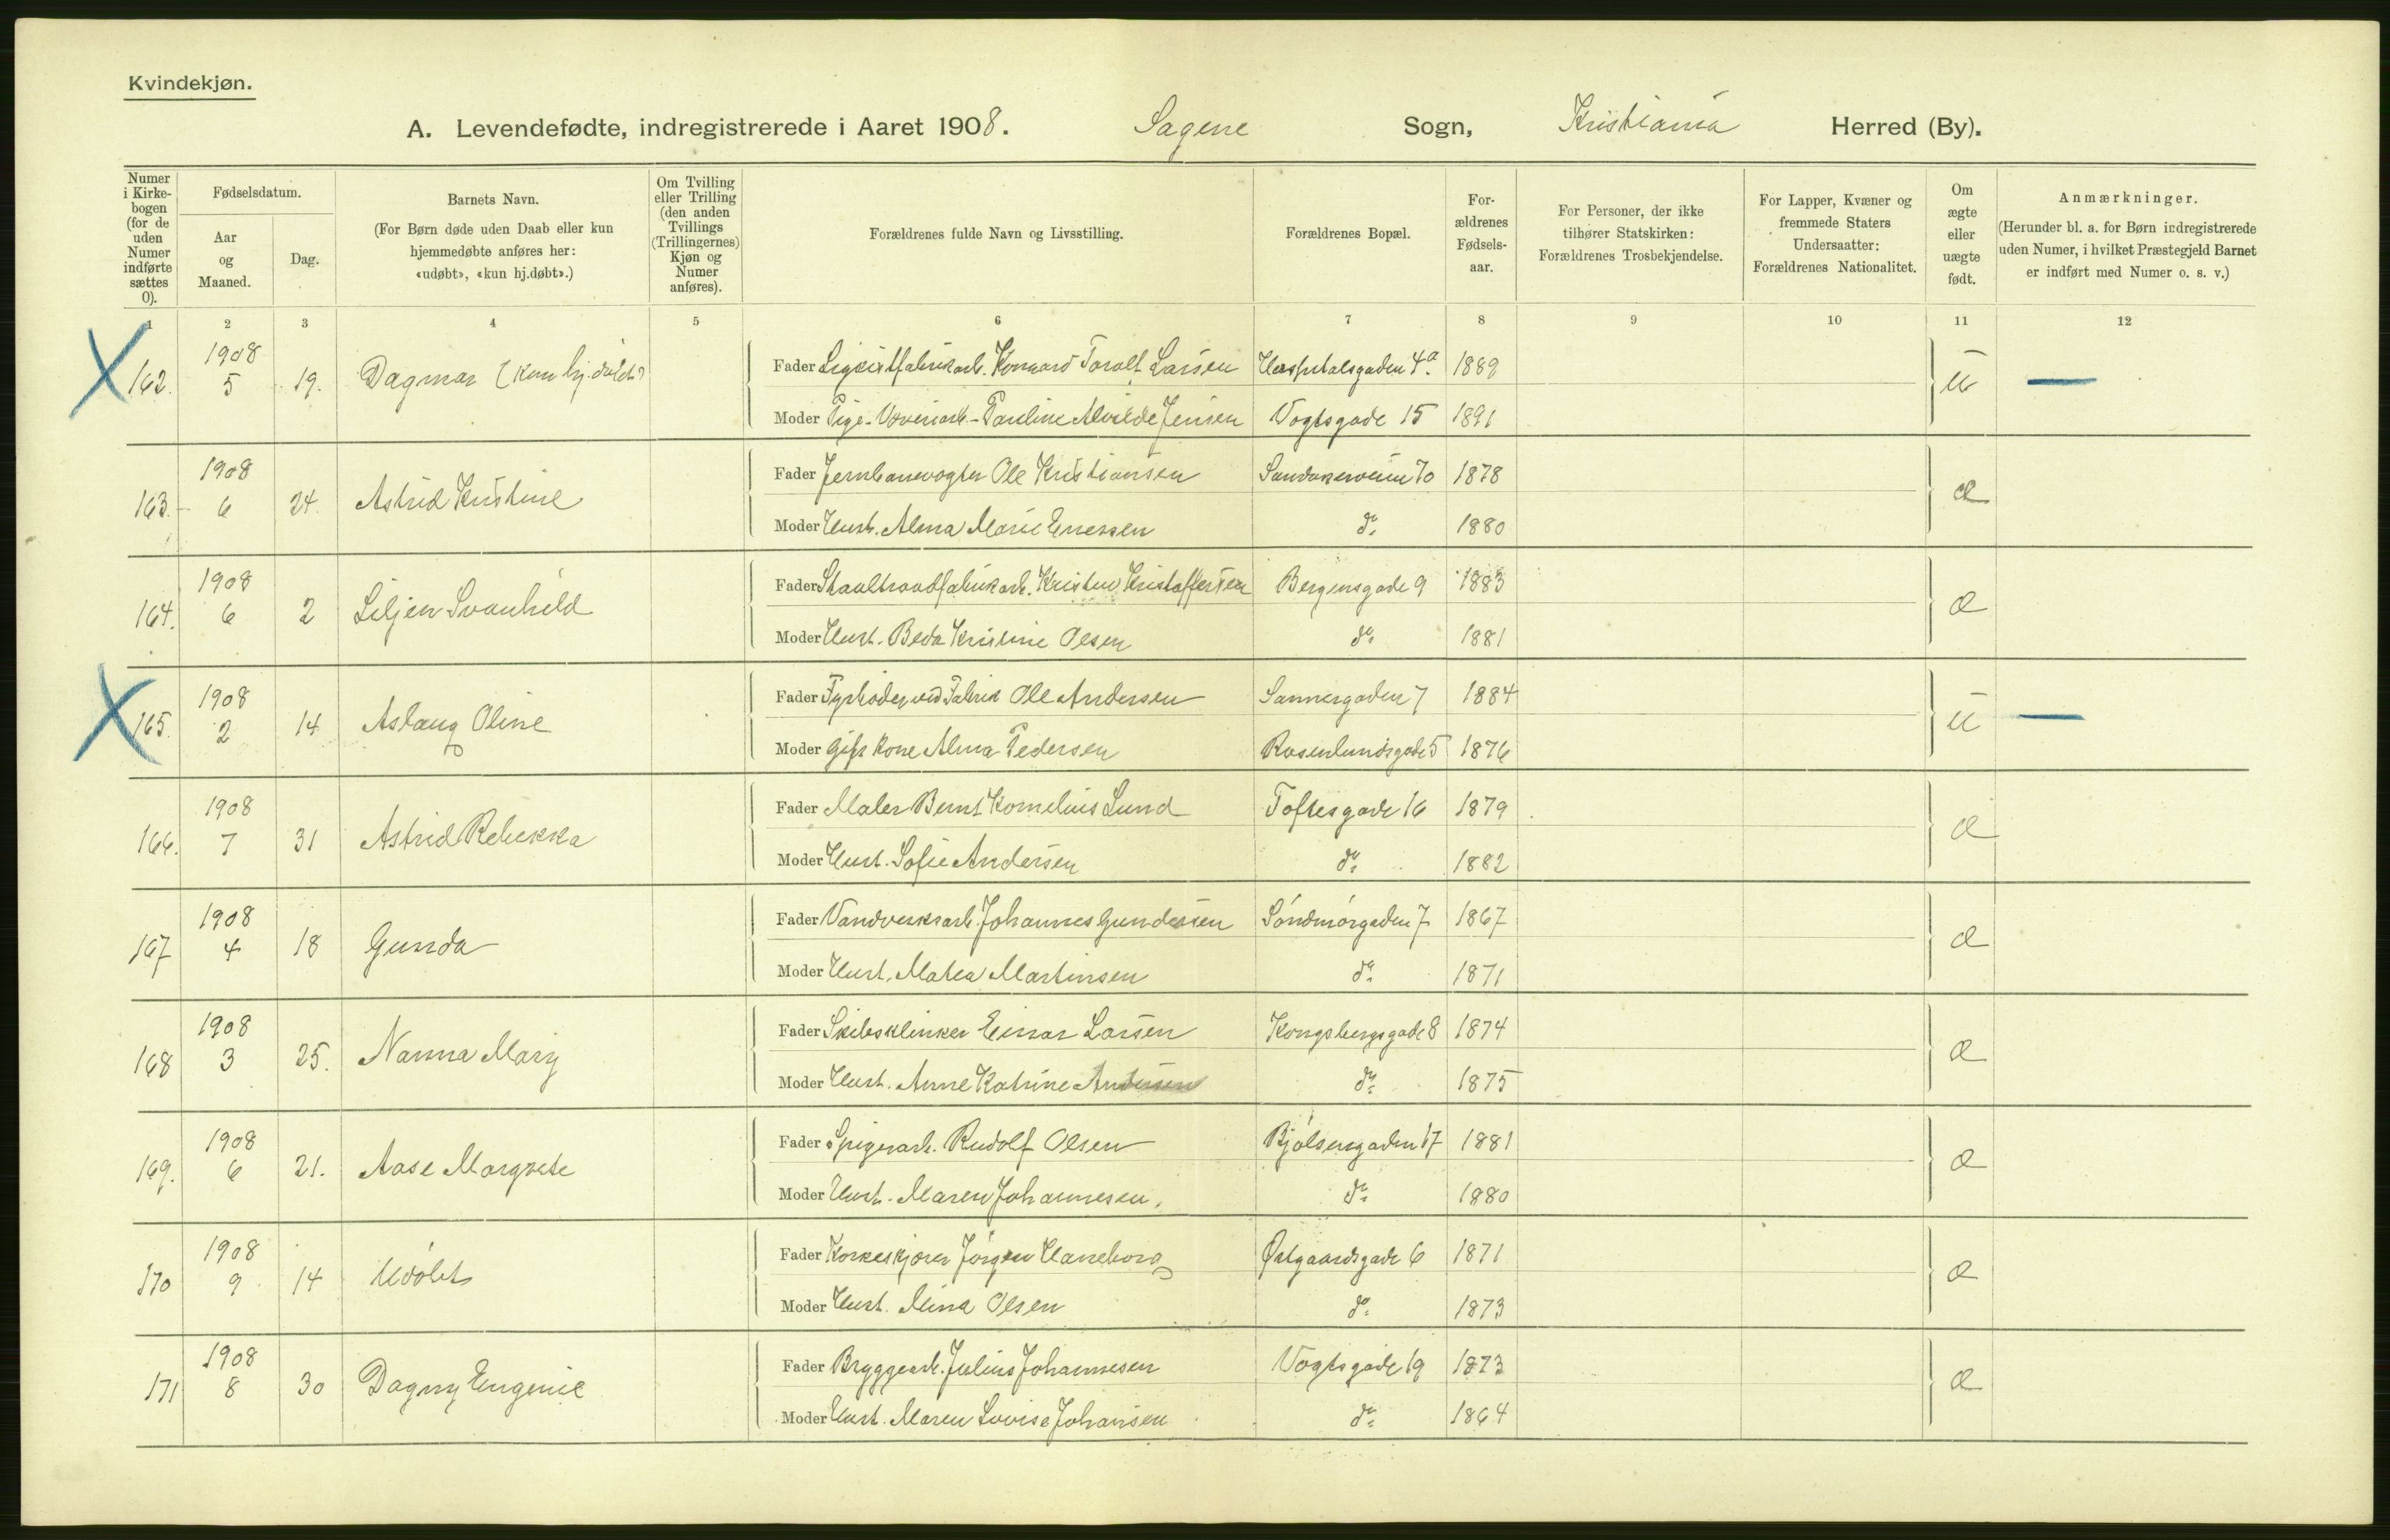 Kvindekjøn.
A. Levendefødte, indregistrerede i Aaret 1908. Sagene Sogn, Kristiania Herred (By).
Numer i Kirkebogen (for de uden Numer indførte sættes 0).
Fødselsdatum.
Aar og Maaned.
Dag.
Barnets Navn.
(For Børn døde uden Daab eller kun hjemmedøbte anføres her: «udøbt», «kun hj.døbt».)
Om Tvilling eller Trilling (den anden Tvillings (Trillingernes) Kjøn og Numer anføres).
Forældrenes fulde Navn og Livsstilling.
Forældrenes Bopæl.
Forældrenes Fødselsaar.
For Personer, der ikke tilhører Statskirken: Forældrenes Trosbekjendelse.
For Lapper, Kvæner og fremmede Staters Undersaatter: Forældrenes Nationalitet.
Om ægte eller uægte født.
Anmærkninger.
(Herunder bl. a. for Børn indregistrerede uden Numer, i hvilket Præstegjeld Barnet er indført med Numer o. s. v.)
1 2 3 4 5 6 7 8 9 10 11 12
162. 1908 5 19. Dagmar (kun hj. døbt)
Fader Larsen Hospitalsgaden 4a. 1889 u —
Moder Pige - Væveriarb. - Pauline Alvilde Jensen Vogtsgade 15 1891
163. 1908 6 24. Astrid Kristine
Fader Jernbanevogter Ole Kristiansen Sandakerveien 70 1878 æ
Moder Hust. Alma Marie do. 1880
164. 1908 6 2 Liljen Svanhild
Fader Staaltraadfabrikarb. Kristen Kristoffersen Bergensgade 9 1883 æ
Moder Hust. Beda Kristine Olsen do. 1881
165. 1908 2 14 Aslaug Oline
Fader Fyrbøder ved Fabrik Ole Andersen Sannergaden 7 1884 u —
Moder Gift Kone Alma Pedersen Rosenlundsgade 5 1876
166. 1908 7 31 Astrid Rebekka
Fader Maler Bernt Kornelius Lund Toftesgade 16 1879 æ
Moder Hust. Sofie Andersen do. 1882
167 1908 4 18 Gunda
Fader Vandverksarb. Johannes Gundersen Søndmørgaden 7 1867 æ
Moder Hust. Matea Martinsen do. 1871
168 1908 3 25. Nanna Mary
Fader Skibsklinker Einar Larsen Kongsbergsgade 8 1874 æ
Moder Hust. Anne Katrine Andersen do. 1875
169. 1908 6 21. Aase Margrete
Fader Spigerarb. Rudolf Olsen Bjølsensgaden 17 1881 æ
Moder Hust. Maren Johannesen. do. 1880
170 1908 9 14 Udøbt
Fader Korkeskjærer Jørgen Haneborg Østgaardsgade 6 1871 æ
Moder Hust. Mina Olsen do. 1873
171 1908 8 30 Dagny Eugenie
Fader Bryggearb. Julius Johannesen Vogtsgade 19 1873 æ
Moder Hust. Maren Lovise Johansen do. 1864